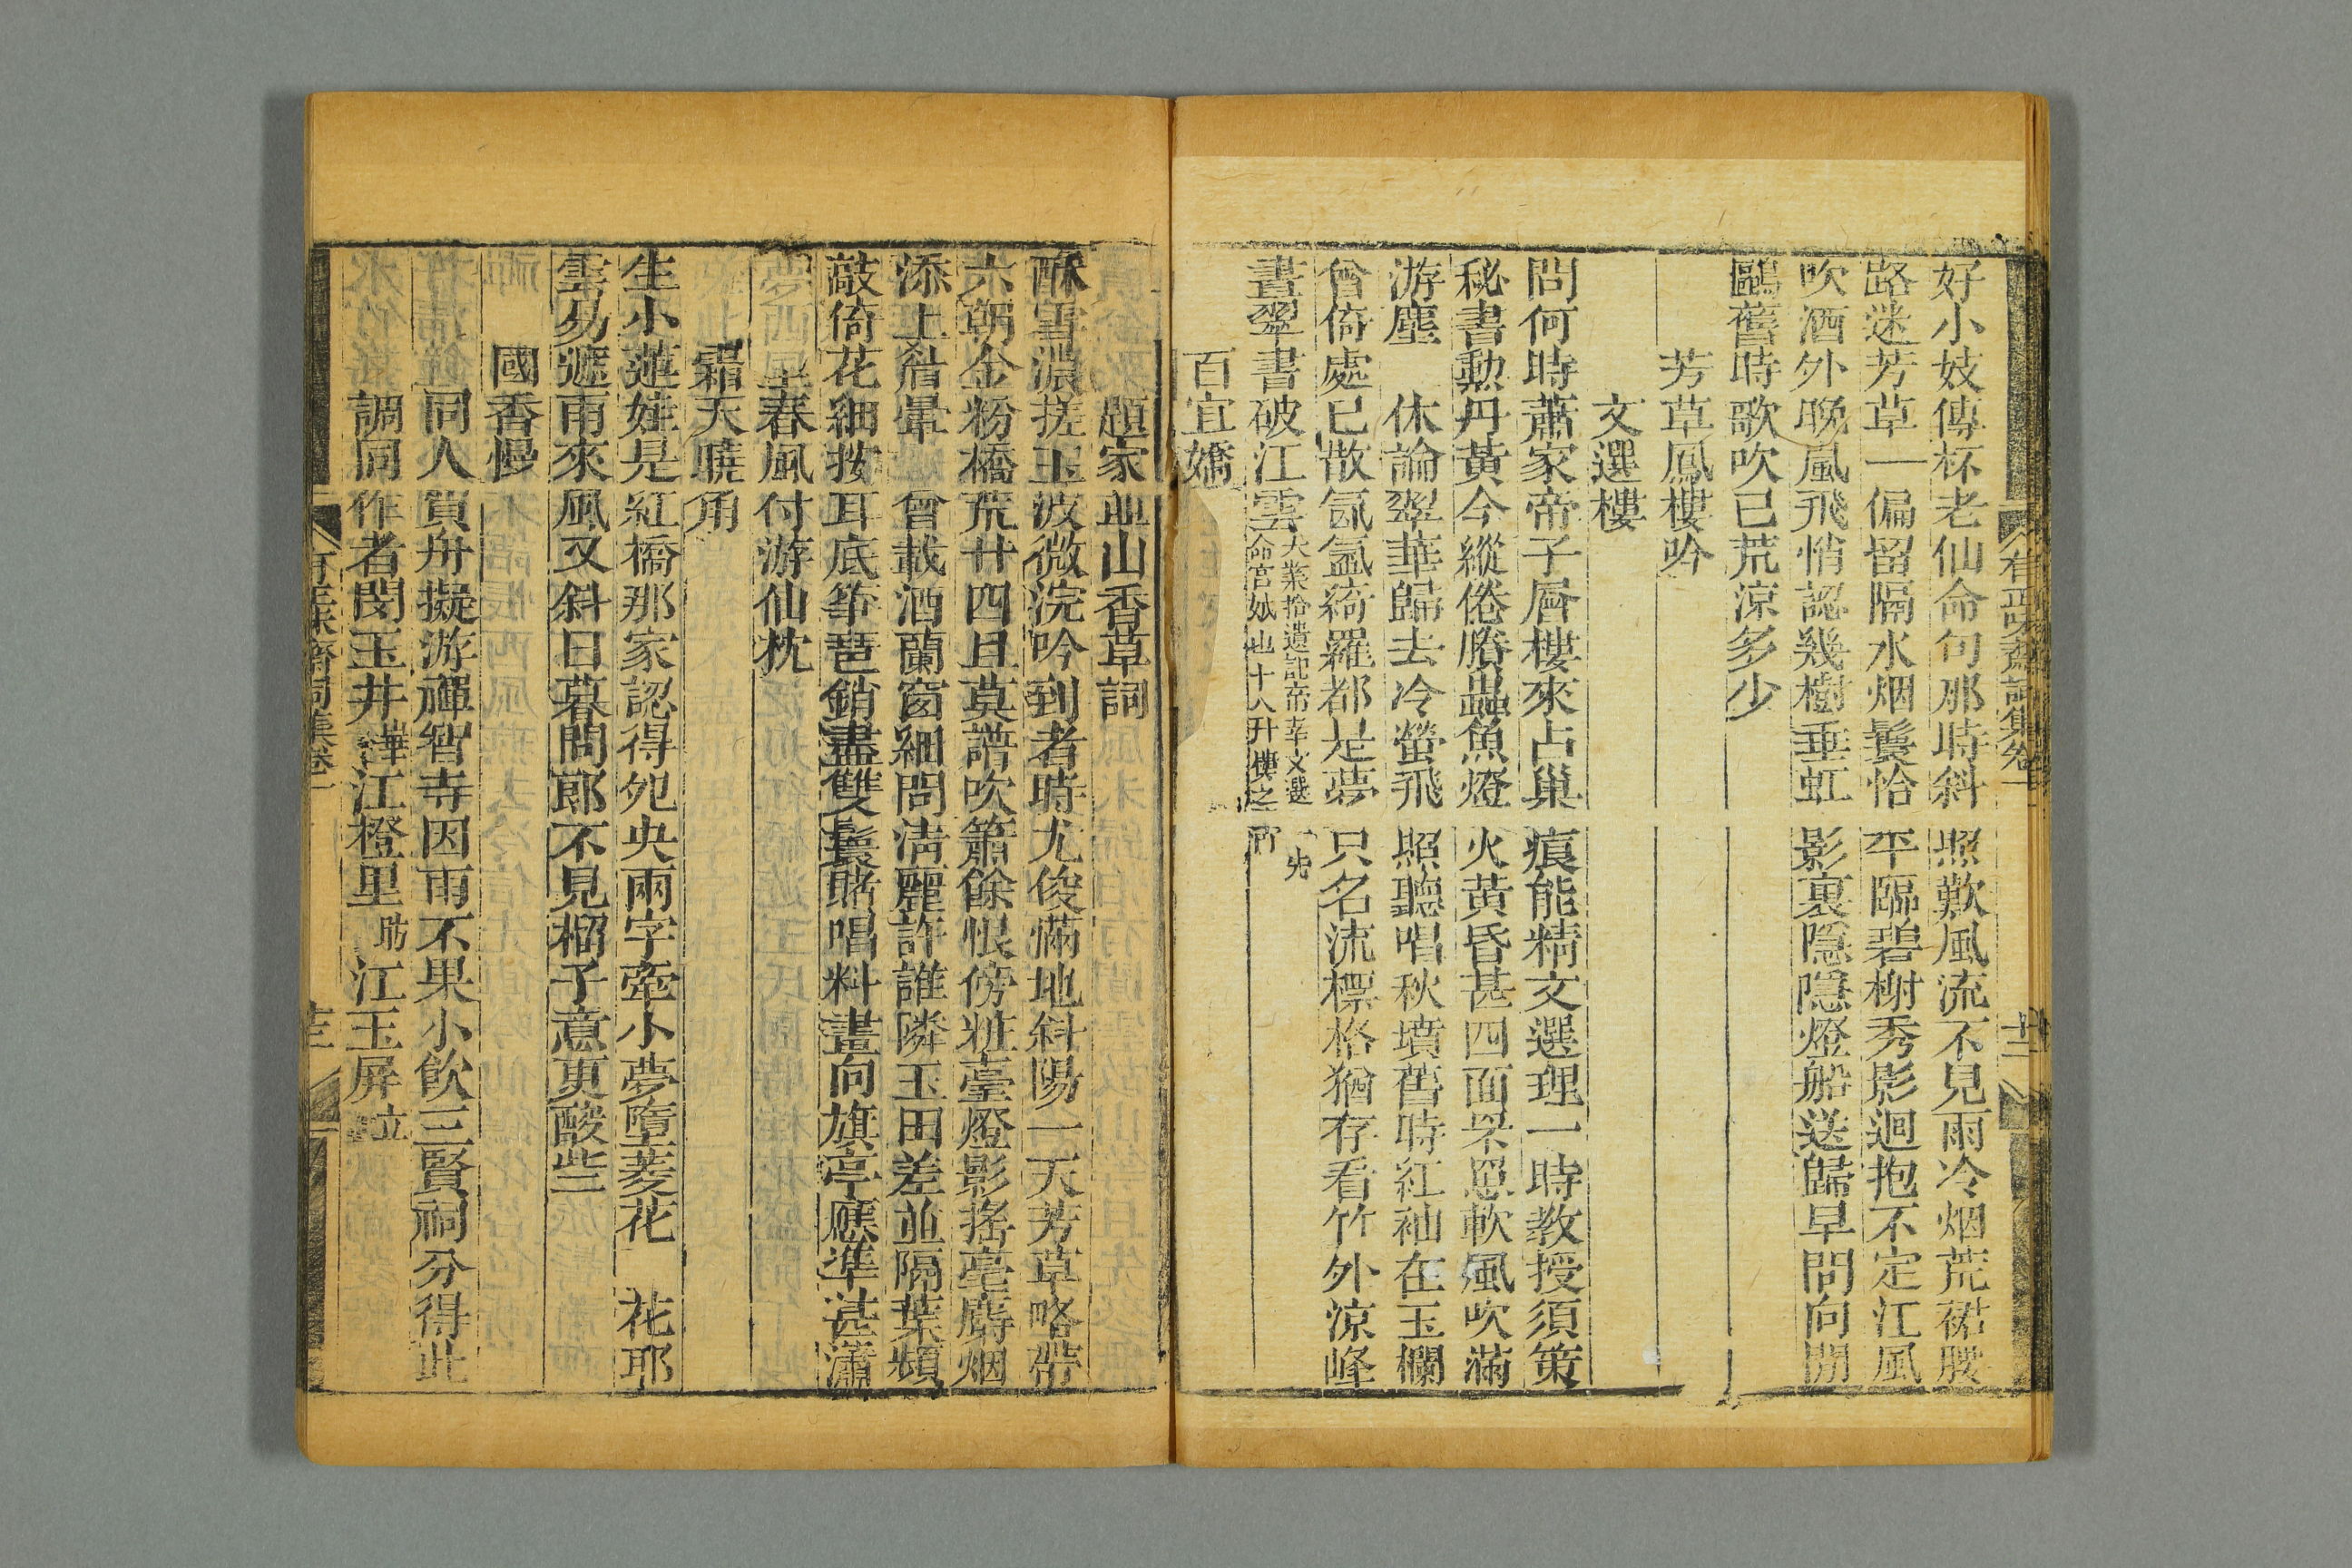 有正味齋詞集卷一
好小妓傳杯老仙命句那時斜照歎風流不見雨冷烟荒裙腰
路迷芳草一偏留隔水烟鬟恰平臨碧榭秀影迴抱不定江風
吹酒外晚風飛悄認幾樹垂虹影裏隱隱燈船送歸早問向閒
鷗舊時歌吹已荒涼多少
芳草鳳樓吟
文選樓
問何時蕭家帝子層樓來占巢痕能精文選理一時教授須策
秘書勲丹黃今縱倦賸蟲魚燈火黃昏甚四面罘罳軟風吹滿
游塵　休論翠華歸去冷螢飛照聽唱秋墳舊時紅袖在玉欄
曾倚處已散氤氳綺羅都是夢只名流標格猶存看竹外涼峰
晝翠書破江雲大業拾遺記帝幸文選樓之命宮
百宜嬌
題家並山香草詞
酥雪濃搓玉波微浣吟到者時尤俊滿地斜陽一天芳草略帶
六朝金粉橋荒廿四且莫譜吹簫餘恨傍粧臺燈影搖毫麝烟
添上眉暈　曾載酒蘭窗細問淸麗許誰隣玉田差並隔葉頻
敲倚花細按耳底箏琶銷盡雙鬟賭唱料畫向旗亭應準甚瀟
生春風付游仙枕
霜天曉角
生小蓮娃是紅橋那家認得夗央兩字牽小夢墮菱花　花耶
雲易遮雨來風又斜日暮問郎不見榴子意更酸些
國香慢
同人買舟擬游禪智寺因雨不果小飲三賢祠分得此
調同作者閔玉井華江橙里昉江玉屏立
有正味齋詞集卷一